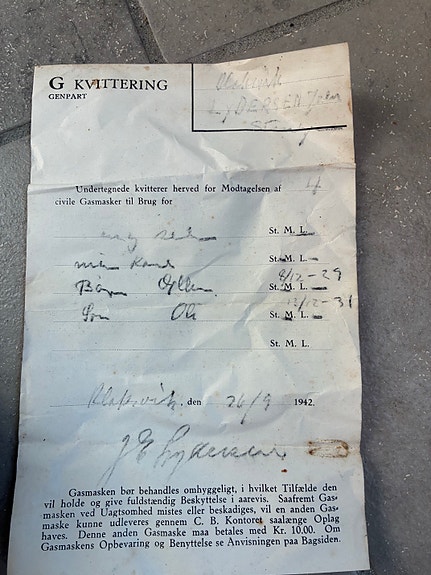 G KVITTERING
GENPART
Undertegnede kvitterer herved for Modtagelsen af 4
civile Gasmasker til Brug for
mig selv St. M. L.
min Kone St. M. L.
8/12-29
Barn St. M. L.
12/12-31
Søn Oli St. M. L.
St. M. L.
Klaksvik, den 26/9 1942.
Gasmasken bør behandles omhyggeligt, i hvilket Tilfælde den
vil holde og give fuldstændig Beskyttelse i aarevis. Saafremt Gas-
masken ved Uagtsomhed mistes eller beskadiges, vil en anden Gas-
maske kunne udleveres gennem C. B. Kontoret saalænge Oplag
haves. Denne anden Gasmaske maa betales med Kr. 10.00. Om
Gasmaskens Opbevaring og Benyttelse se Anvisningen paa Bagsiden.